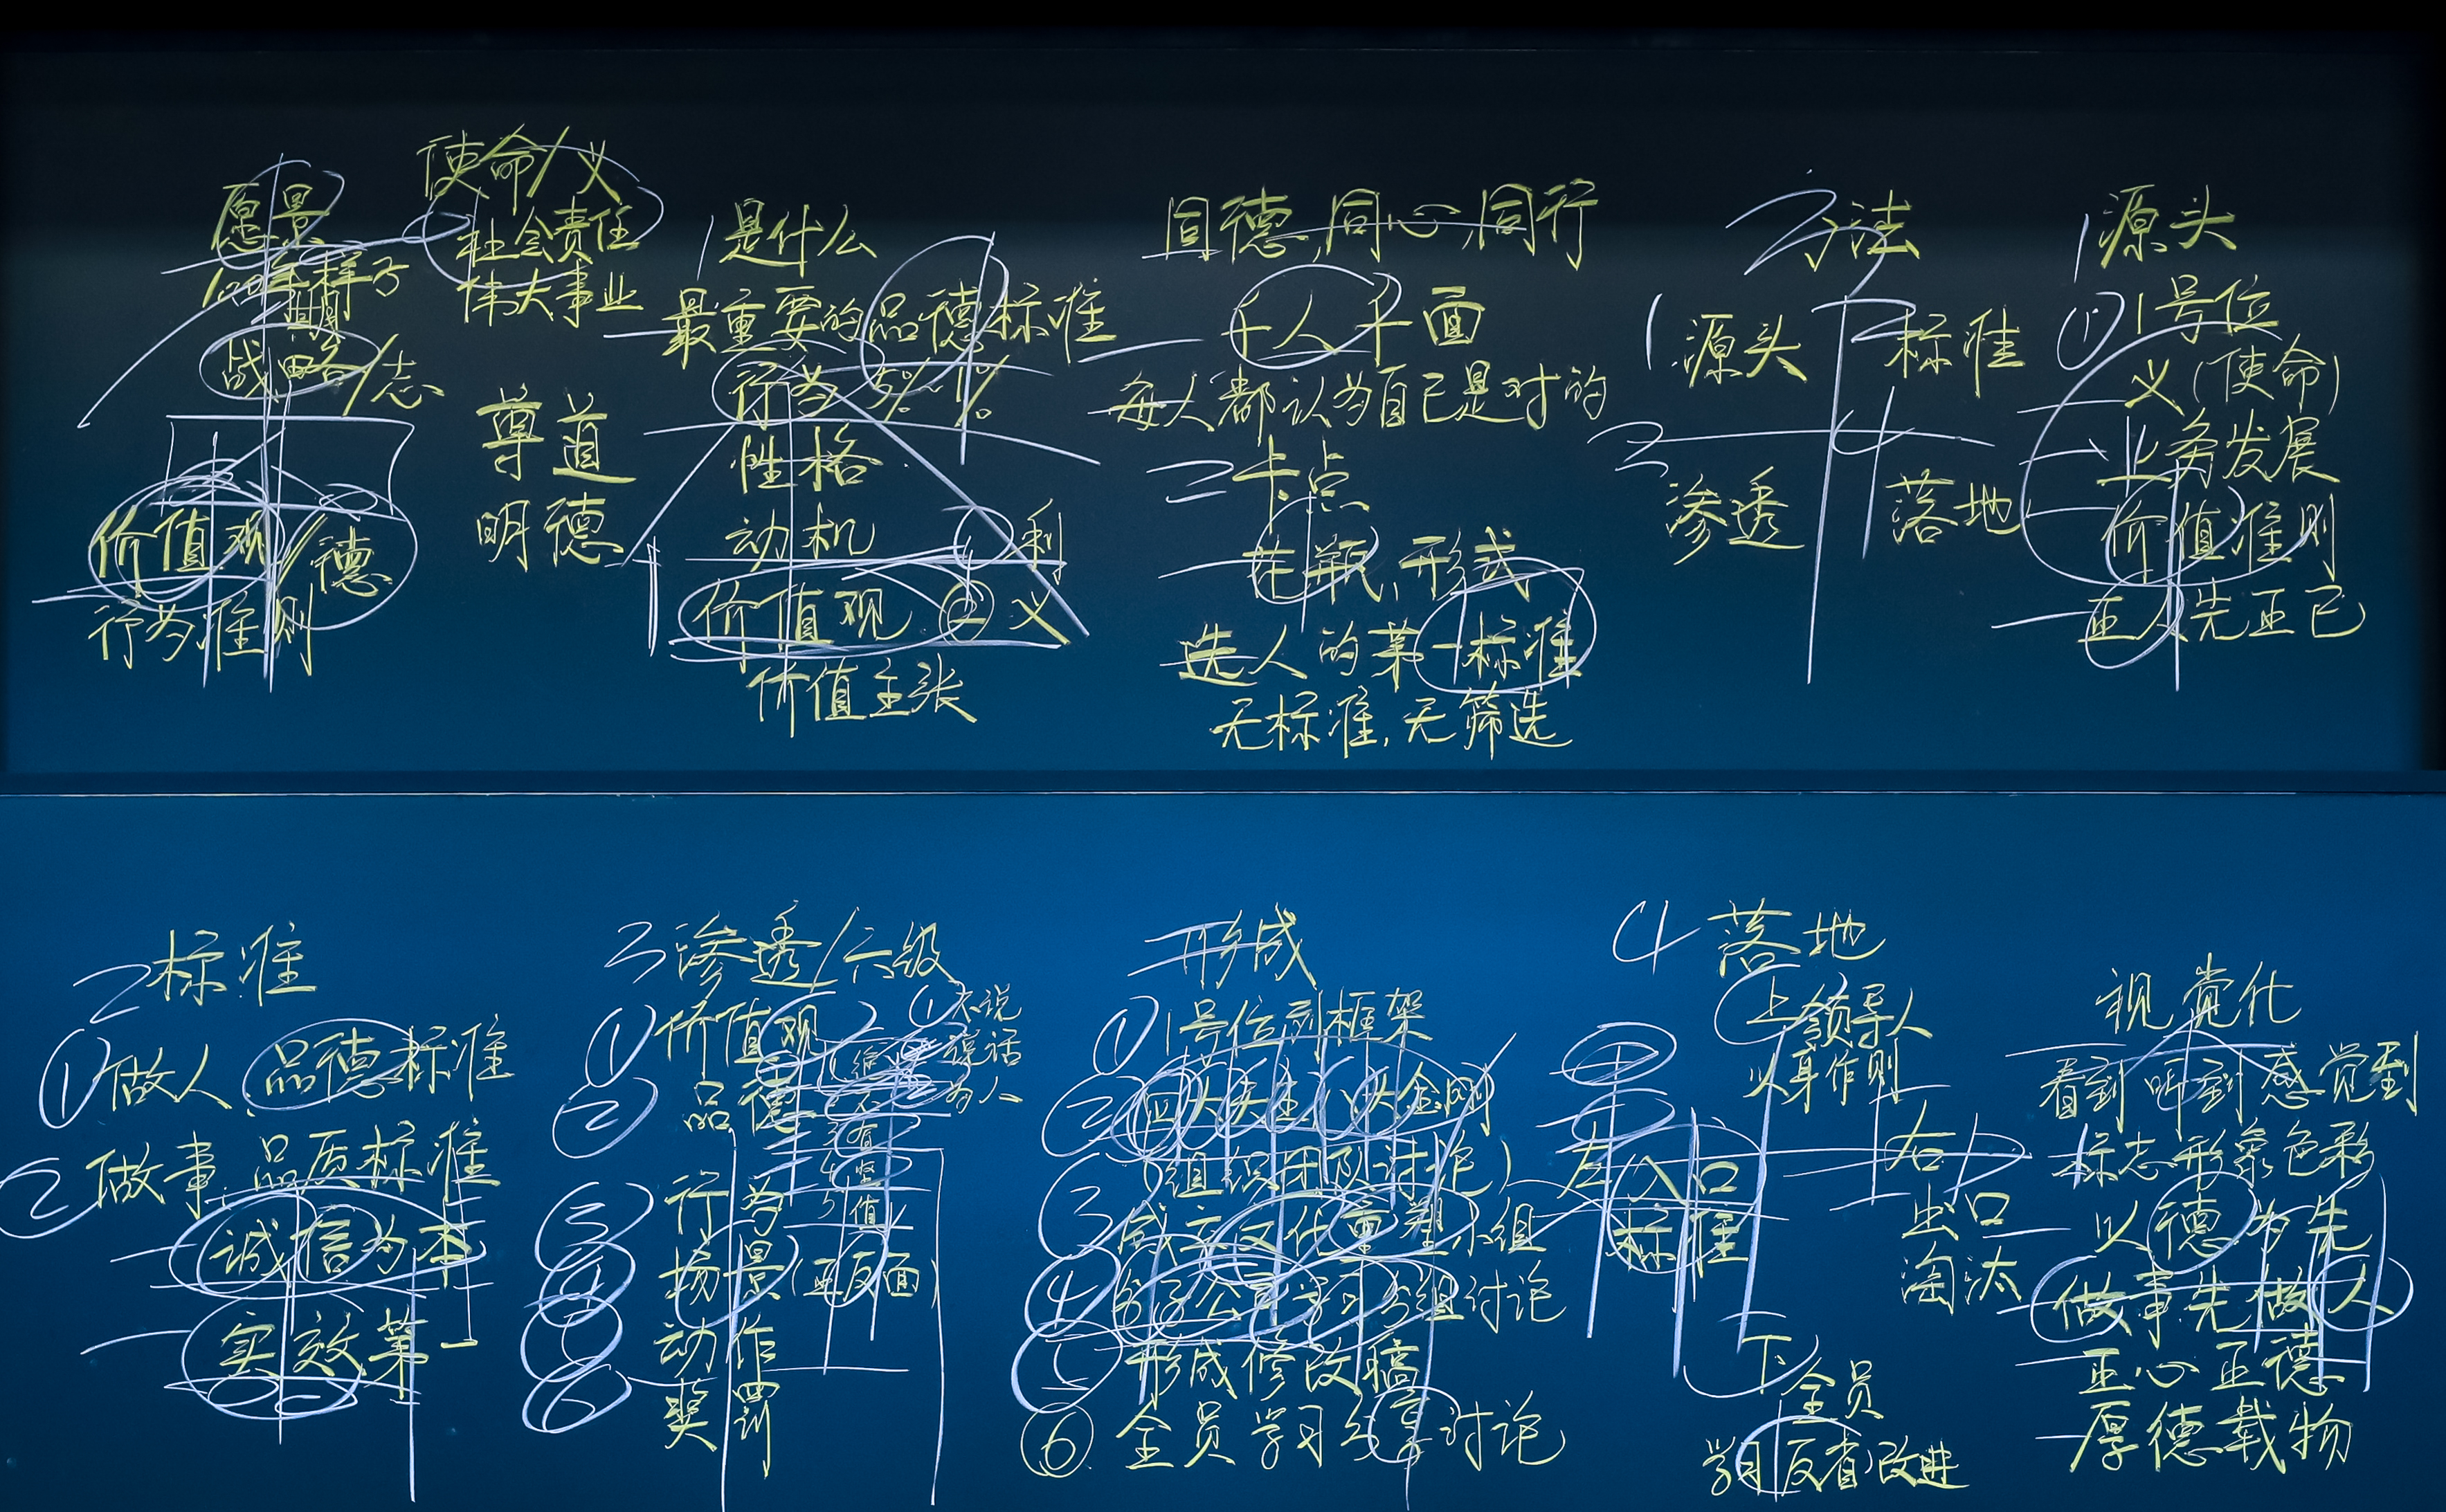 愿景
100年样子
战略/志
价值观/德
行为准则
使命/义
社会责任
伟大事业
尊道
明德
1 是什么
最重要的品德标准
行为 5% 1%
性格
动机 利
价值观 义
价值主张
同德,同心,同行
千人千面
每人都认为自己是对的
二卡点
花瓶,形式
选人的第一标准
无标准,无筛选
方法
1 源头 2 标准
3 渗透 4 落地
1 源头
① 1号位
义(使命)
业务发展
价值准则
正人先正己
2 标准
① 做人 品德标准
② 做事 品质标准
诚信为本
实效第一
3 渗透/六级
① 价值观
② 品德
③ 行为
④ 场景(正反面)
⑤ 动作
⑥ 奖罚
① 不说
谎话
形成
① 1号位列框架
②
(组织团队讨论)
③ 成立文化重塑小组
④ 分子公司学习分组讨论
⑤ 形成修改稿
⑥ 全员学习分享讨论
4 落地
上 领导人
以身作则
左 入口
标准
右
出口
淘汰
下 全员
学习反省改进
视觉化
看到 听到 感觉到
标志形象色彩
以德为先
做事先做人
正心正德
厚德载物